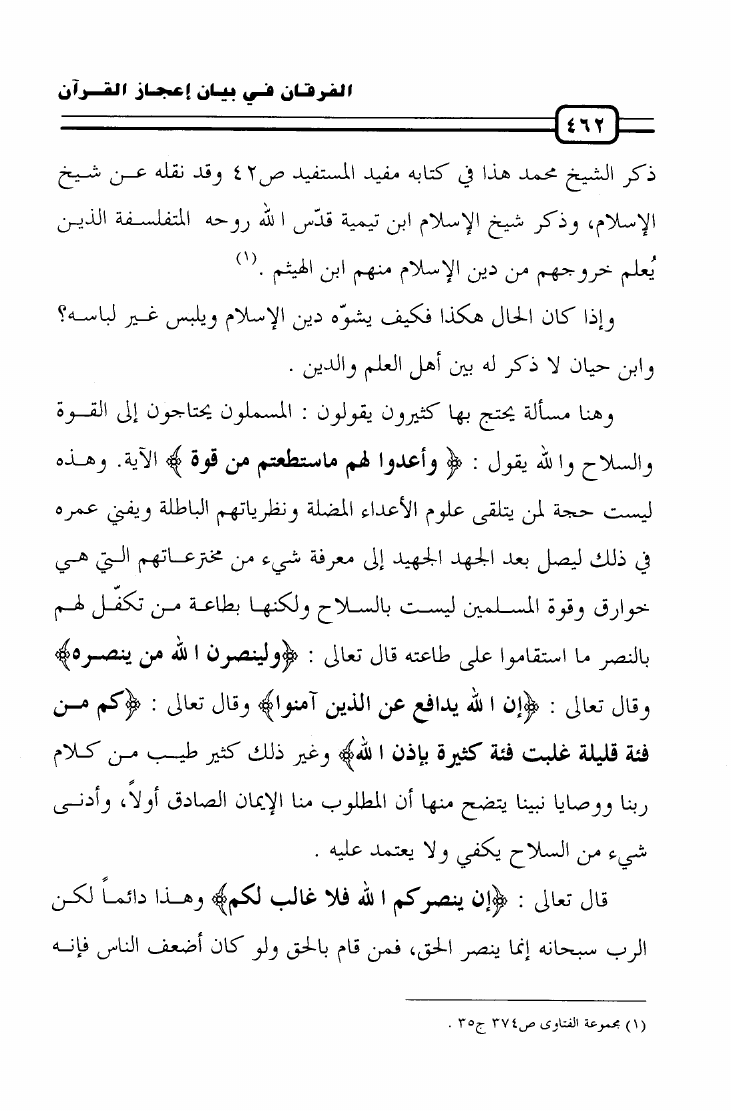 الفرقان في بيان إعجاز القرآن
٤٦٢
ذكر الشيخ محمد هذا في كتابه مفيد المستفيد ص٤٢ وقد نقله عن شيخ
الإسلام، وذكر شيخ الإسلام ابن تيمية قدّس الله روحه المتفلسفة الذين
يُعلم خروجهم من دين الإسلام منهم ابن الهيثم .(١)
وإذا كان الحال هكذا فكيف يشوّه دين الإسلام ويلبس غير لباسه؟
وابن حيان لا ذكر له بين أهل العلم والدين .
وهنا مسألة يحتج بها كثيرون يقولون : المسملون يحتاجون إلى القوة
والسلاح والله يقول : ﴿ وأعدوا لهم ماستطعتم من قوة ﴾ الآية. وهذه
ليست حجة لمن يتلقى علوم الأعداء المضلة ونظرياتهم الباطلة ويفني عمره
في ذلك ليصل بعد الجهد الجهيد إلى معرفة شيء من مخترعاتهم التي هي
خوارق وقوة المسلمين ليست بالسلاح ولكنها بطاعة من تكفّل لهم
بالنصر ما استقاموا على طاعته قال تعالى : ﴿ولينصرن الله من ينصره﴾
وقال تعالى : ﴿إن الله يدافع عن الذين آمنوا﴾ وقال تعالى : ﴿كم من
فئة قليلة غلبت فئة كثيرة بإذن الله﴾ وغير ذلك كثير طيب من كلام
ربنا ووصايا نبينا يتضح منها أن المطلوب منا الإيمان الصادق أولاً، وأدنى
شيء من السلاح يكفي ولا يعتمد عليه .
قال تعالى : ﴿إن ينصركم الله فلا غالب لكم﴾ وهذا دائماً لكن
الرب سبحانه إنما ينصر الحق، فمن قام بالحق ولو كان أضعف الناس فإنه
(١) مجموعة الفتاوى ص٣٧٤ ج٣٥ .